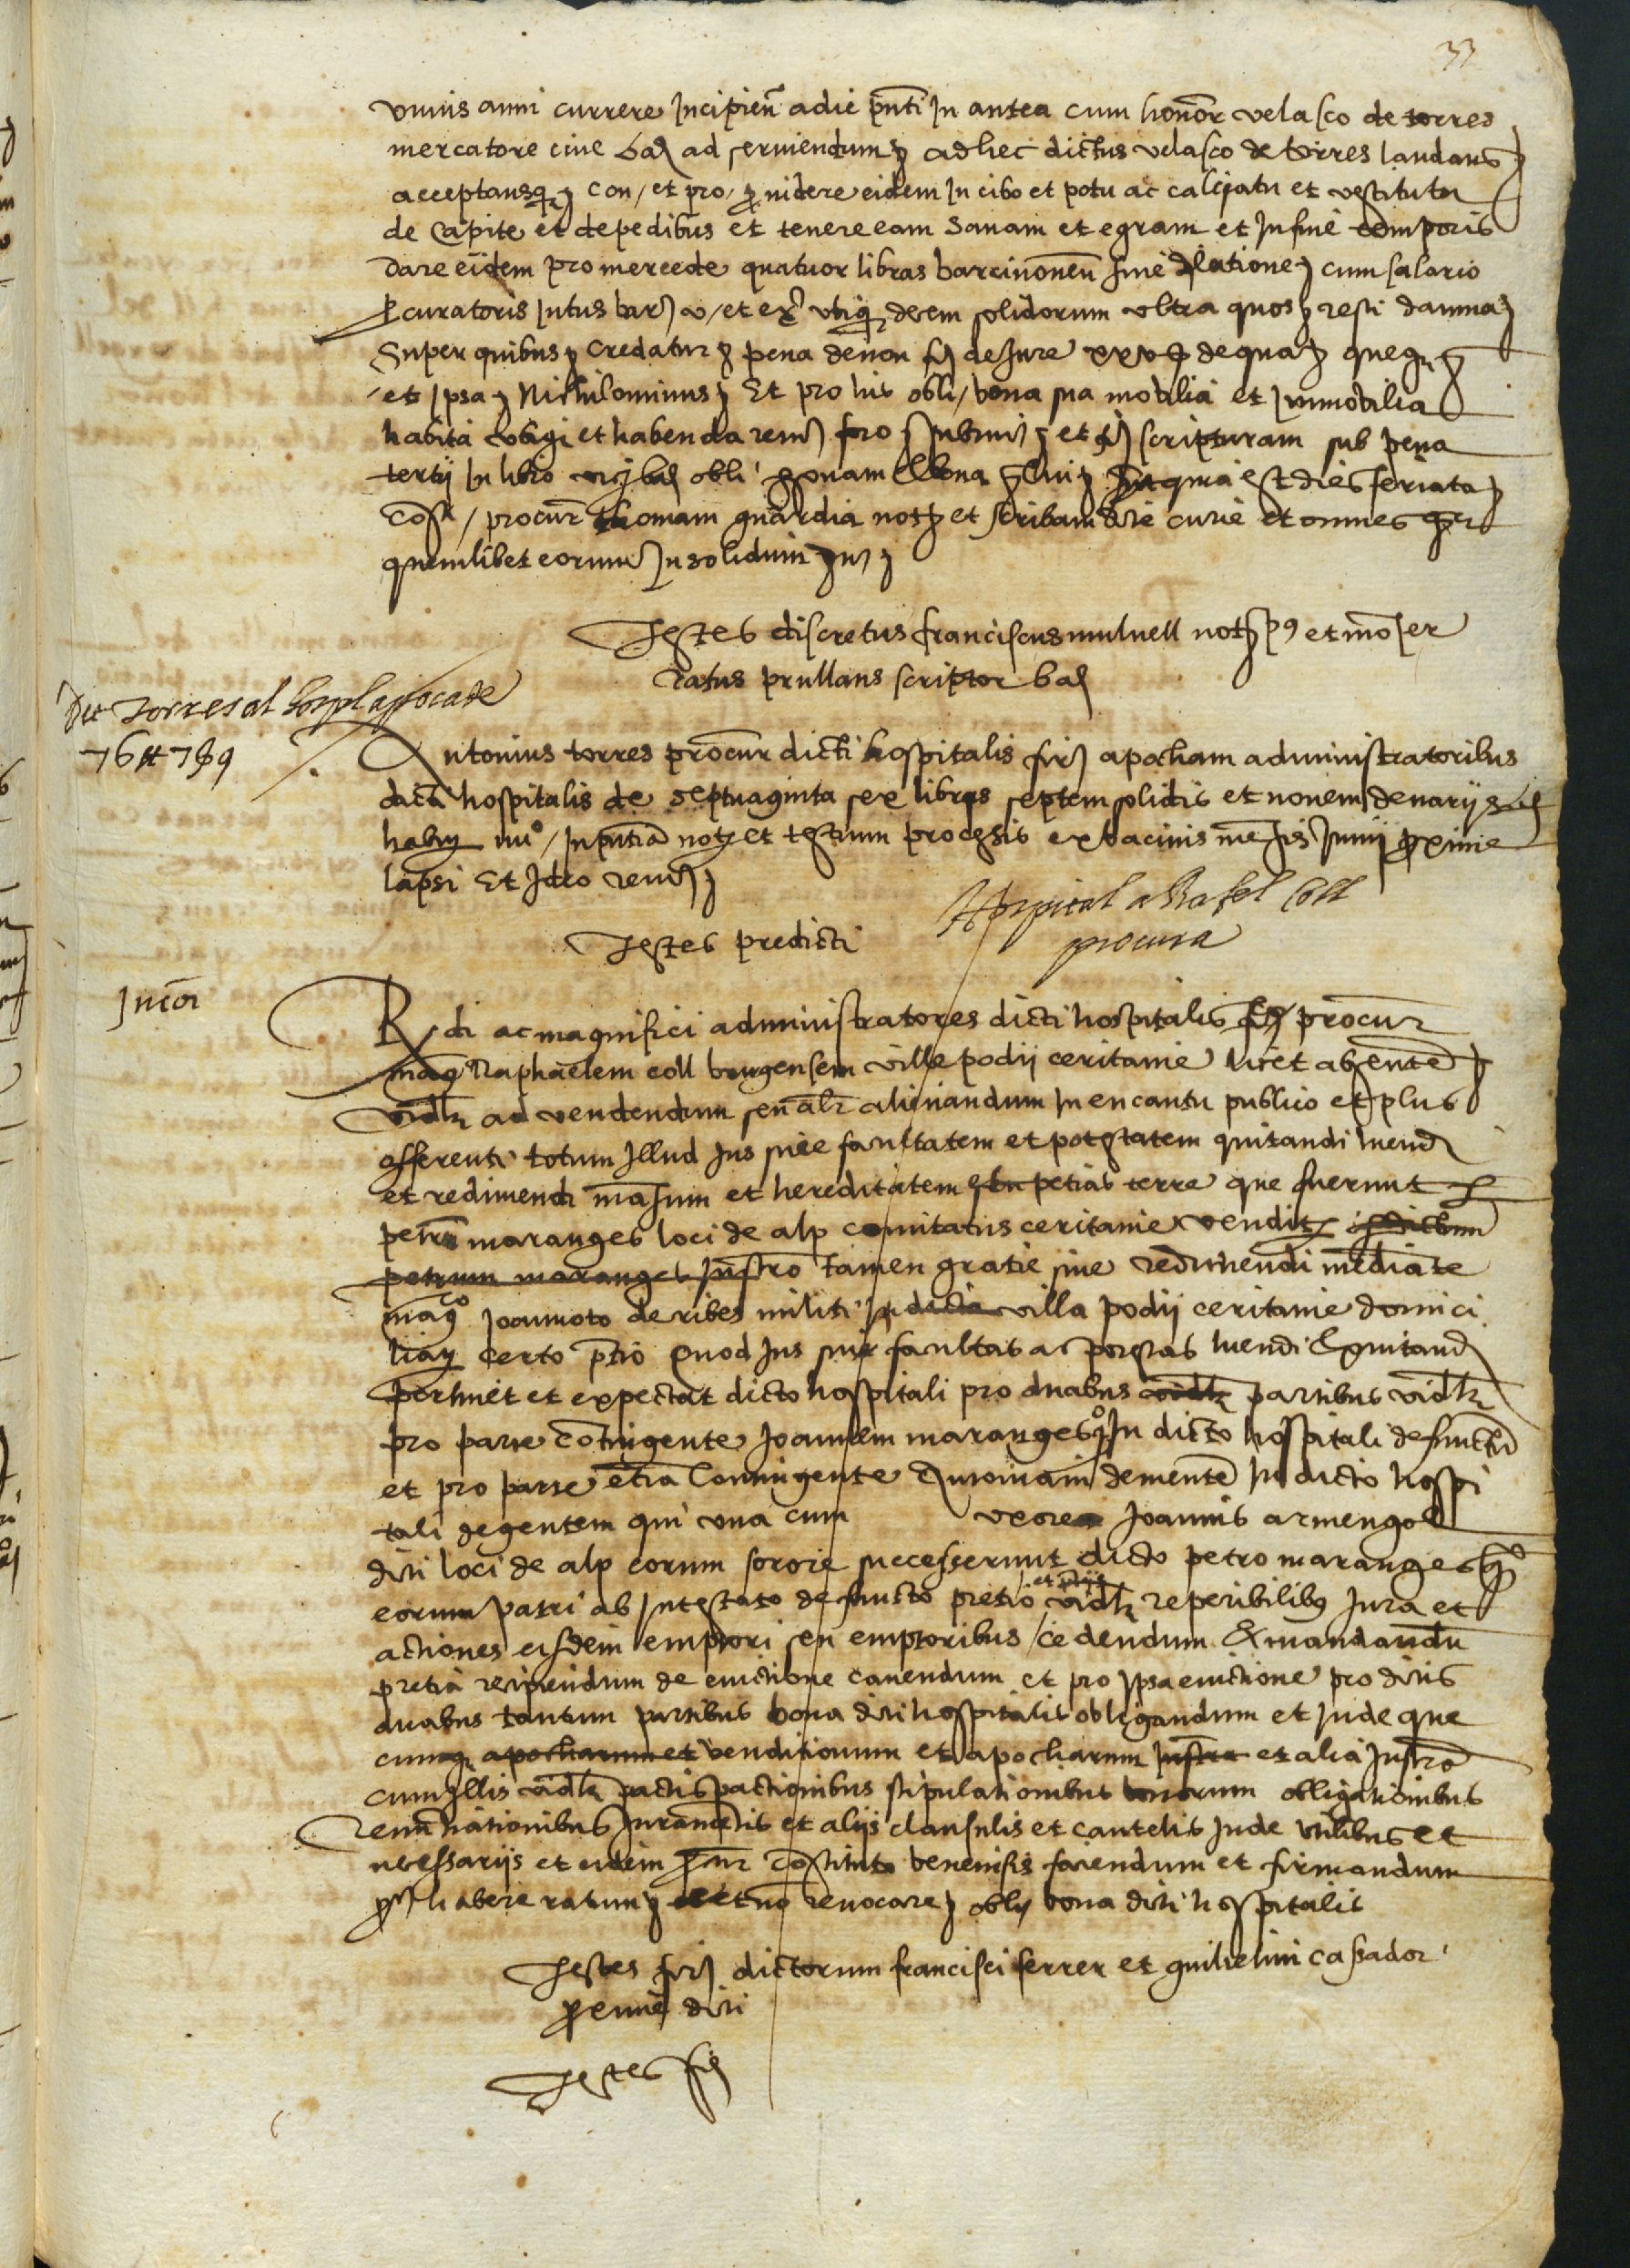 33
unius anni currere Incipien adie pnti In antea cum honor velasco de torres
mercatore cive bar ad serviendum adhec dictus velasco de torres laudans
acceptansq con / et pro / providere eidem In cibo et potu ac calciatu et vestitutu
de capite et de pedibus et tenere eam Sanam et egram et In fine temporis
dare eidem pro mercede quatuor libras barcinonen sine dilatione cum salario
procuratoris Intus bar v / et ex utiq decem solidorum ultra quos resti damna
Super quibus credatur pena de non de Jure de qua queq
et Ipsa Nichilominus Et pro his obli / bona sua mobilia et Immobilia
habita ubiq et habenda renun foro submit et scripturam sub pena
tertii In libro vicj bar obli personam et bona quia est dies feriata
Const / procur thomam guardia not et scribam dicte curie et omnes
quemlibet eorum In solidum
Testes discretus franciscus mulnell not et
ratus prullans scriptor bar
De torres al hospl apoca de
76 ll 7 s 9
Antonius torres procur dicti hospitalis fir apocham administratoribus
dicti hospitalis de septuaginta sex libras septem solidis et novem denariis
habuy nu / In pntia not et testium processis ex bacinis mensis Junii proxime
lapsi Et Ideo renun
Testes predicti
Hospital a Rafel Coll
procura
R di ac magnifici administratores dicti hospitalis procur
mag Raphaelem coll burgensem ville podii ceritanie licet absentem
videlt ad vendendum seu als alienandum In encantu publico et plus
offerenti totum Illud Jus sive facultatem et potestatem quitandi luendi
et redimendi masum et hereditatem petias terre que fuerunt
petri maranges loci de alp comitatus ceritanie vendit
petrum maranges Instro tamen gratie sive redimendi mediante
mag co Joannoto de ribes militi In dicta villa podii ceritanie domici
liay certo ptio Quod Jus sive facultas ac potestas luendi et quitandi
pertinet et expectat dicto hospitali pro duabus videlt partibus videlt
pro parte contingente Joannem maranges In dicto hospitali defunctu
et pro parte etia Contingente Antoniam demente In dicto hospi
tali degentem qui una cum uxore Joannis armengol
dicti loci de alp eorum sorore successerunt dicto petro maranges qo
eorum patri ab Intestato defuncto pretio et ptiis videlt reperibilibus Jura et
actiones eisdem emptori seu emptoribus cedendum et mandandu
pretia recipiendum de evictione cavendum et pro Ipsa evictione pro dictis
duabus tantum partibus bona dicti hospitalis obligandum et Inde que
cumq apocharum et venditionum et apocharum Instra et alia Instro
cum Illis videlt pactis pactionibus stipulationibus bonorum obligationibus
renuntiationibus Juramentis et aliis clausulis et cautelis Inde utilibus et
necessariis et eidem procur constituto benevisis faciendum et firmandum
habere ratum et no revocare obly bona dicti hospitalis
Testes fir dictorum francisci ferrer et guilielmi cassador
proxime dicti
Testes fir